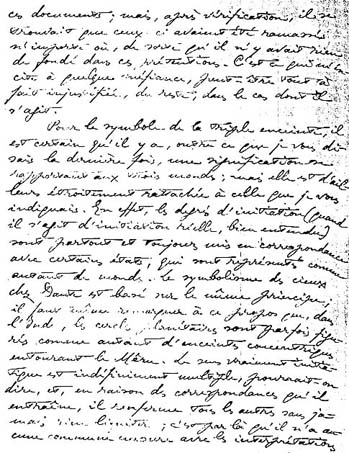 ces documents ; mais, après vérification, il se
trouvait que ceux-ci avaient été ramassés
n'importe où, de sorte qu'il n'y avait rien
de fondé dans ces prétentions. C'est ce qui
à quelque méfiance, peut-être tout à
fait injustifiée, du reste, dans le cas dont il
s'agit.
Pour le symbole de la triple enceinte, il
est certain qu'il y a, outre ce que je vous di-
sais la dernière fois, une signification se
rapportant aux trois mondes ; mais elle est d'ail-
leurs étroitement rattachée à celle que je vous
indiquais. En effet, les degrés d'initiation (quand
il s'agit d'initiation réelle, bien entendu)
sont partout et toujours mis en correspondance
avec certains états, qui sont représentés comme
autant de mondes. Le symbolisme des cieux
chez Dante est basé sur le même principe ;
il faut même remarquer à ce propos que, dans
l'Inde, les cercles planétaires sont parfois figu-
rés comme autant d'enceintes concentriques
entourant le Mêru. Le sens vraiment initia-
tique est indéfiniment multiple, pourrait-on
dire, et, en raison des correspondances qu'il
entraîne, il renferme tous les autres sans ja-
mais s'y limiter ; c'est par là qu'il n'a au-
cune commune mesure avec les interprétations